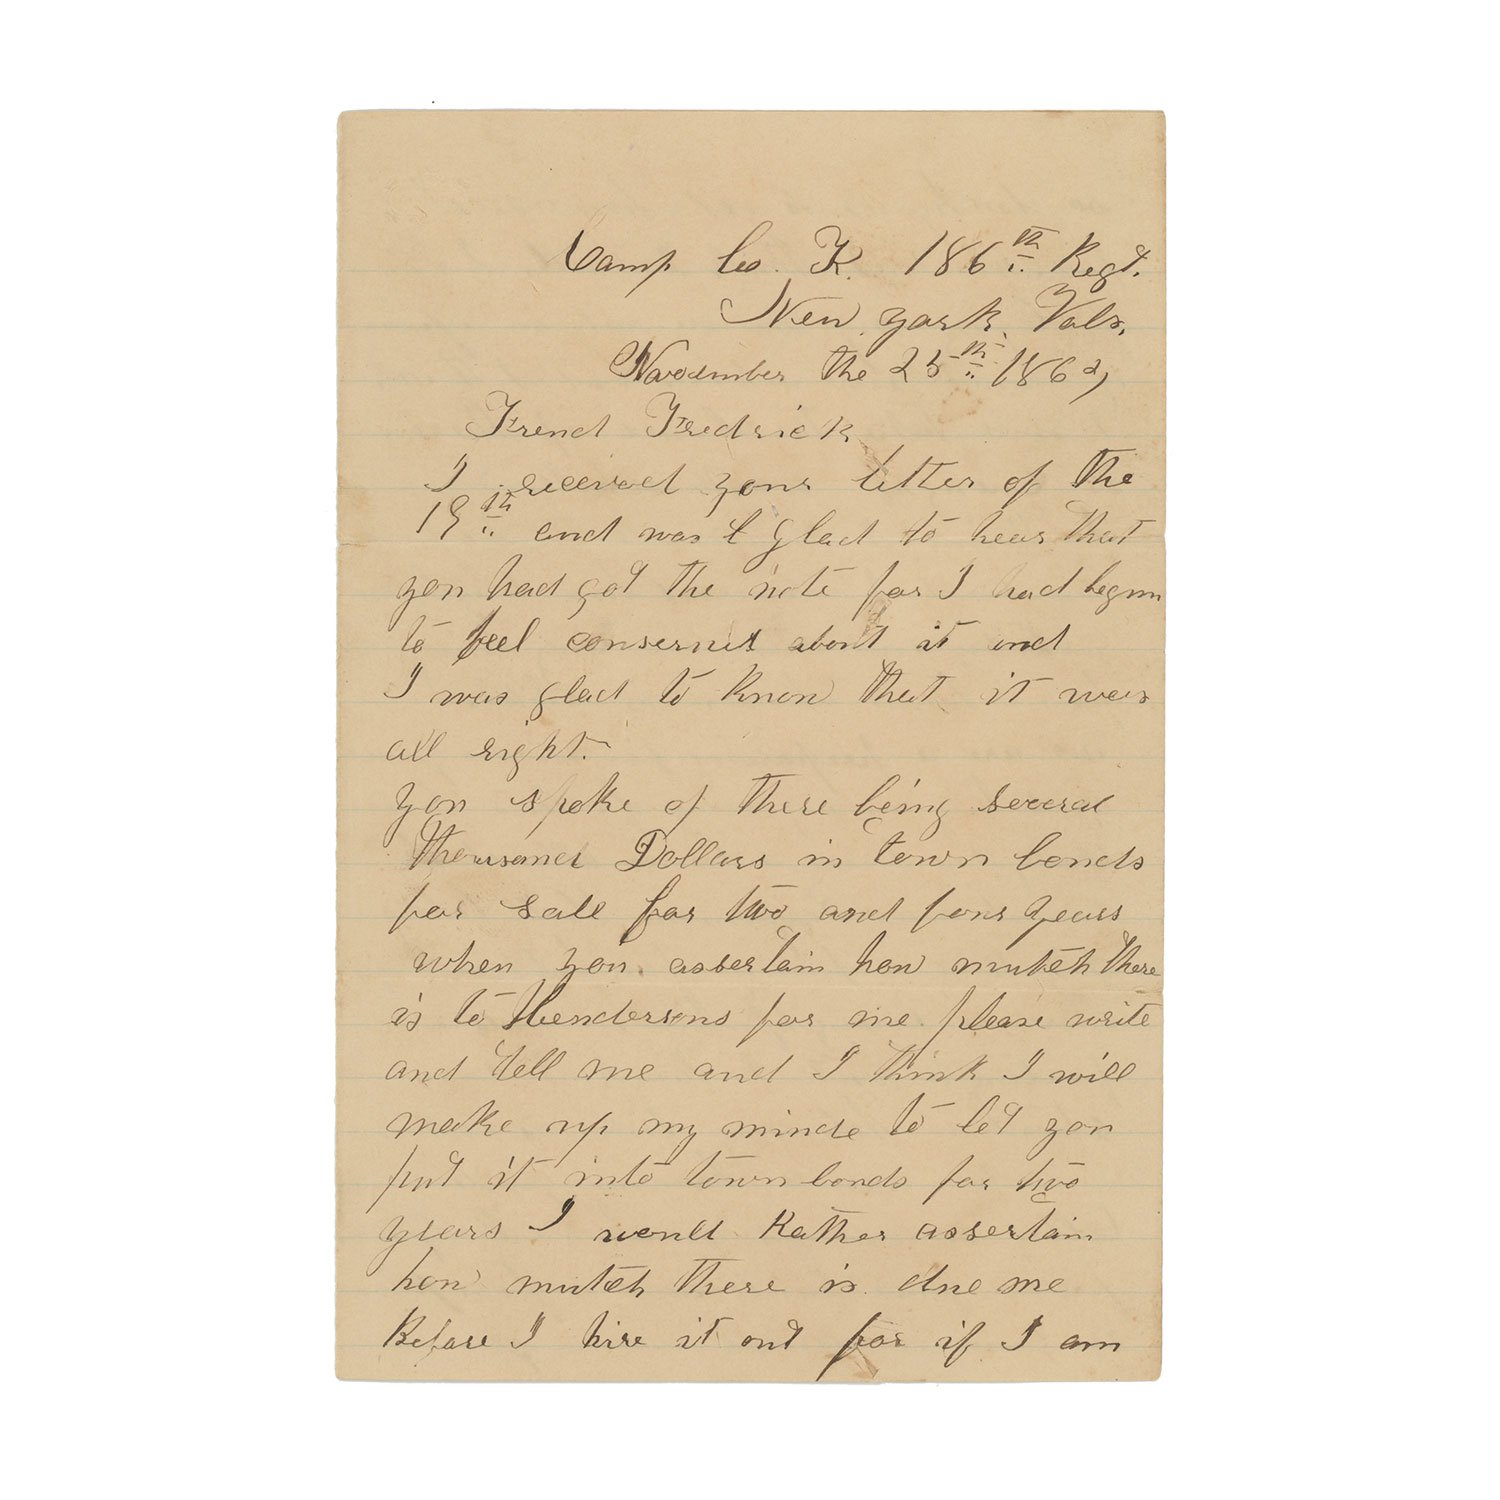 Camp Co. K. 186th Regt.
New york, Vols,
November the 25th 1862,
Frend Fredrick
I received your letter of the
19th and was glad to hear that
you had got the note for I had begun
to feel conserned about it and
I was glad to know that it was
all right.
you spoke of there being several
thousand Dollars in town bonds
for sale for two and four years
when you assertain how mutch there
is to Hendersons for me please write
and tell me and I think I will
make up my minde to let you
put it into town bonds for two
years I would Rather assertain
how mutch there is due me
Before I hire it out for if I am